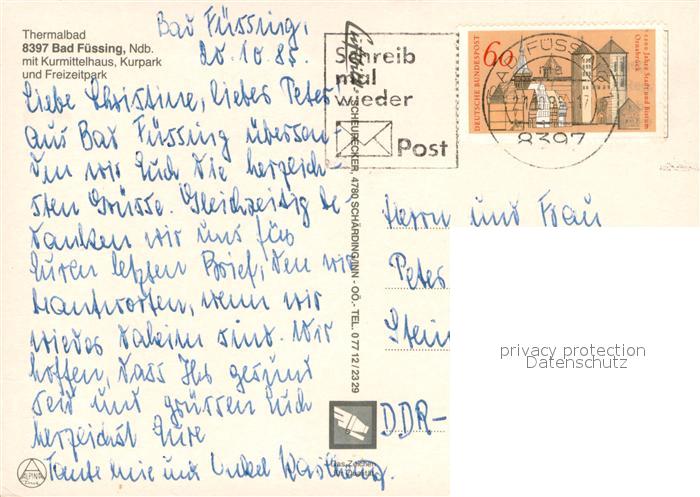 Thermalbad
8397 Bad Füssing, Ndb.
mit Kurmittelhaus, Kurpark
und Freizeitpark
Bad Füssing,
20.10.85.
Liebe Christine, liebes Peter
aus Bad Füssing übersen-
den wir Euch die herzlich-
sten Grüsse. Gleichzeitig be-
danken wir uns fürs
Euren letzten Brief, den wir
beantworten, wenn wir
wieder daheim sind. Wir
hoffen, dass Ihr gesund
seid und grüssen Euch
herzlichst Eure
Tante und Onkel
ALPINA
Druck
Luftbild: SCHEURECKER, 4780 SCHÄRDING/INN - OÖ.- TEL. 0 77 12 / 23 29
Schreib
mal
wieder
Post
60
DEUTSCHE BUNDESPOST
1200 Jahre Stadt und Bistum
Osnabrück
BAD FÜSSING
8397
Herrn und Frau
Peter
Stein
DDR-
Das Zeichen
privacy protection
Datenschutz